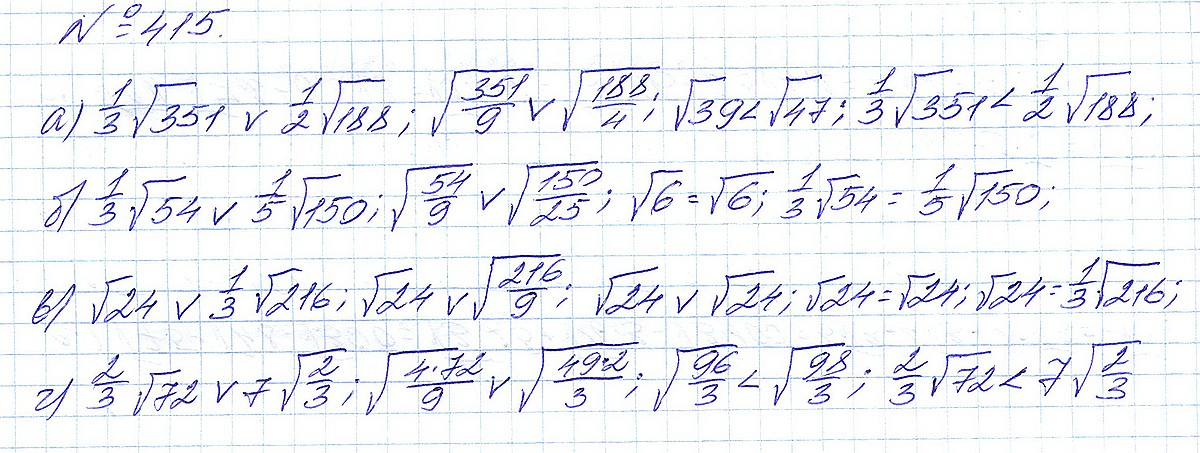 № 415.
а) 1/3 √351 ∨ 1/2 √188; √(351/9) ∨ √(188/4); √39 < √47; 1/3 √351 < 1/2 √188;
б) 1/3 √54 ∨ 1/5 √150; √(54/9) ∨ √(150/25); √6 = √6; 1/3 √54 = 1/5 √150;
в) √24 ∨ 1/3 √216; √24 ∨ √(216/9); √24 ∨ √24; √24 = √24; √24 = 1/3 √216;
г) 2/3 √72 ∨ 7 √(2/3); √(4·72/9) ∨ √(49·2/3); √(96/3) < √(98/3); 2/3 √72 < 7 √(2/3)